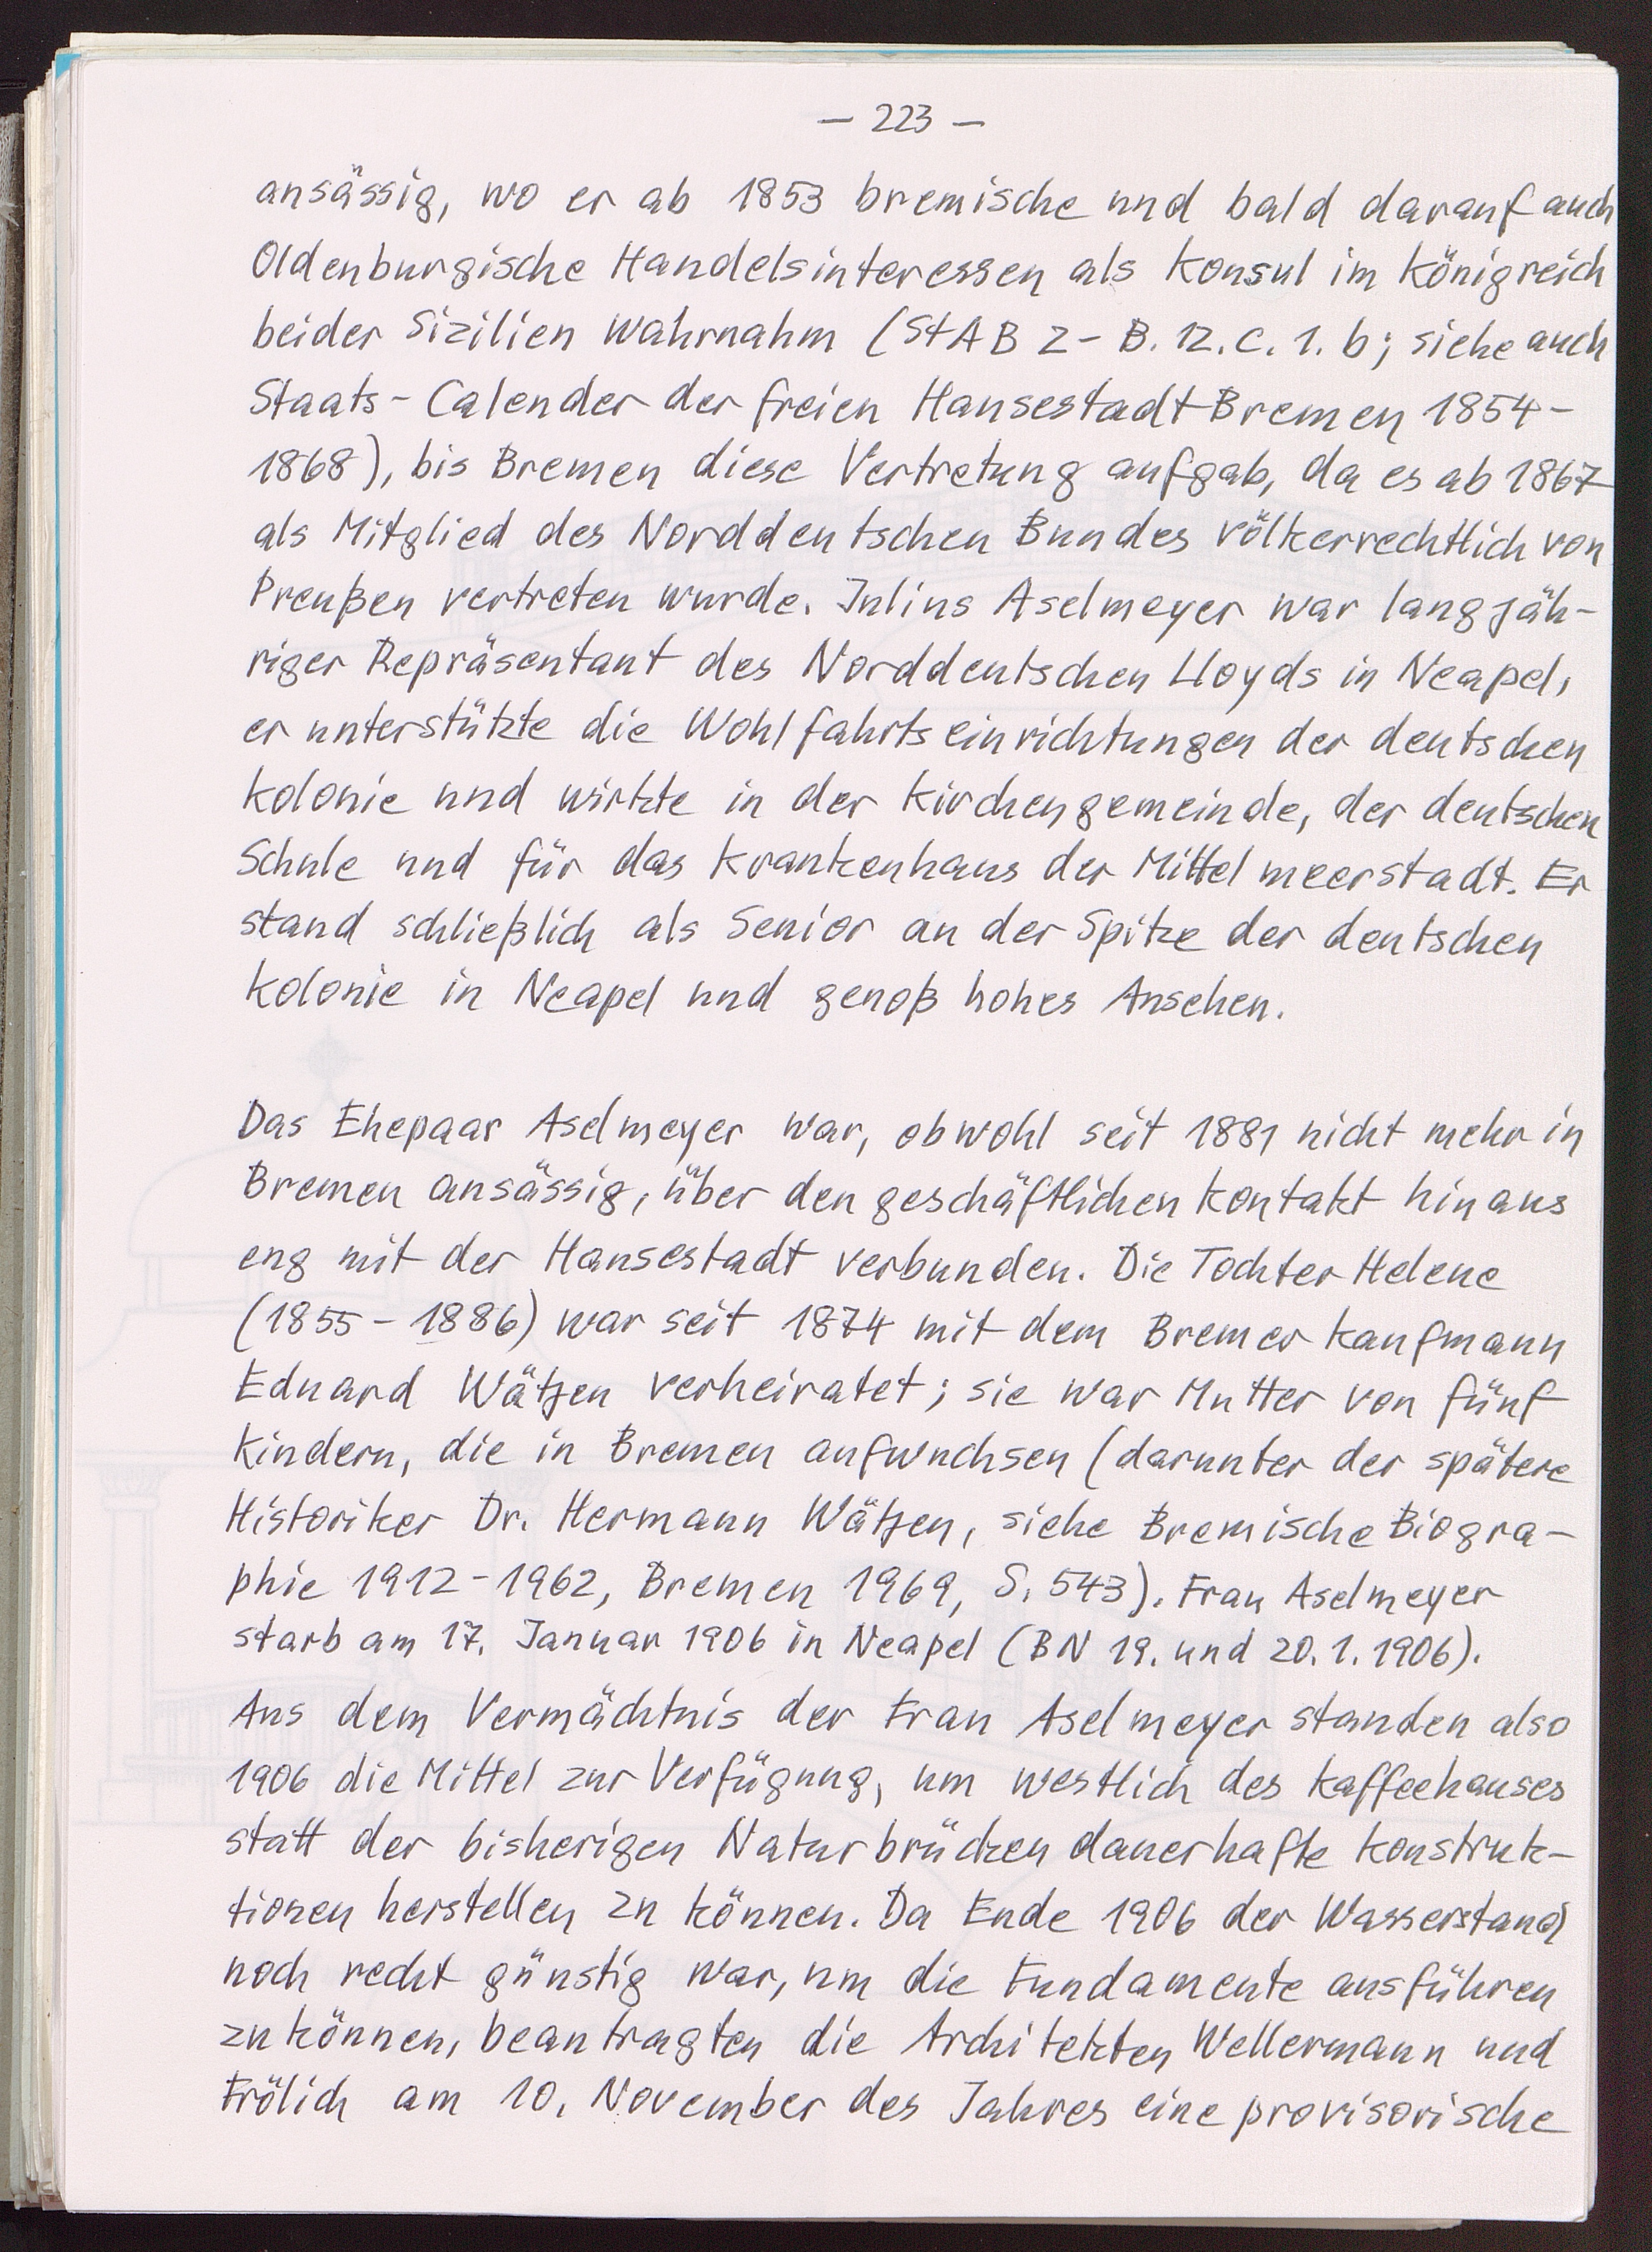 – 223 –
ansässig, wo er ab 1853 bremische und bald darauf auch
Oldenburgische Handelsinteressen als Konsul im Königreich
beider Sizilien wahrnahm (StAB 2-B.12.C.1.b; siehe auch
Staats-Calender der freien Hansestadt Bremen 1854-
1868), bis Bremen diese Vertretung aufgab, da es ab 1867
als Mitglied des Norddeutschen Bundes völkerrechtlich von
Preußen vertreten wurde. Julius Aselmeyer war langjäh-
riger Repräsentant des Norddeutschen Lloyds in Neapel,
er unterstützte die Wohlfahrtseinrichtungen der deutschen
Kolonie und wirkte in der Kirchengemeinde, der deutschen
Schule und für das Krankenhaus der Mittelmeerstadt. Er
stand schließlich als Senior an der Spitze der deutschen
Kolonie in Neapel und genoß hohes Ansehen.
Das Ehepaar Aselmeyer war, obwohl seit 1881 nicht mehr in
Bremen ansässig, über den geschäftlichen Kontakt hinaus
eng mit der Hansestadt verbunden. Die Tochter Helene
(1855-1886) war seit 1874 mit dem Bremer Kaufmann
Eduard Wätjen verheiratet; sie war Mutter von fünf
Kindern, die in Bremen aufwuchsen (darunter der spätere
Historiker Dr. Hermann Wätjen, siehe Bremische Biogra-
phie 1912-1962, Bremen 1969, S. 543). Frau Aselmeyer
starb am 17. Januar 1906 in Neapel (BN 19. und 20.1.1906).
Aus dem Vermächtnis der Frau Aselmeyer standen also
1906 die Mittel zur Verfügung, um westlich des Kaffeehauses
statt der bisherigen Naturbrücken dauerhafte Konstruk-
tionen herstellen zu können. Da Ende 1906 der Wasserstand
noch recht günstig war, um die Fundamente ausführen
zu können, beantragten die Architekten Wellermann und
Frölich am 10. November des Jahres eine provisorische